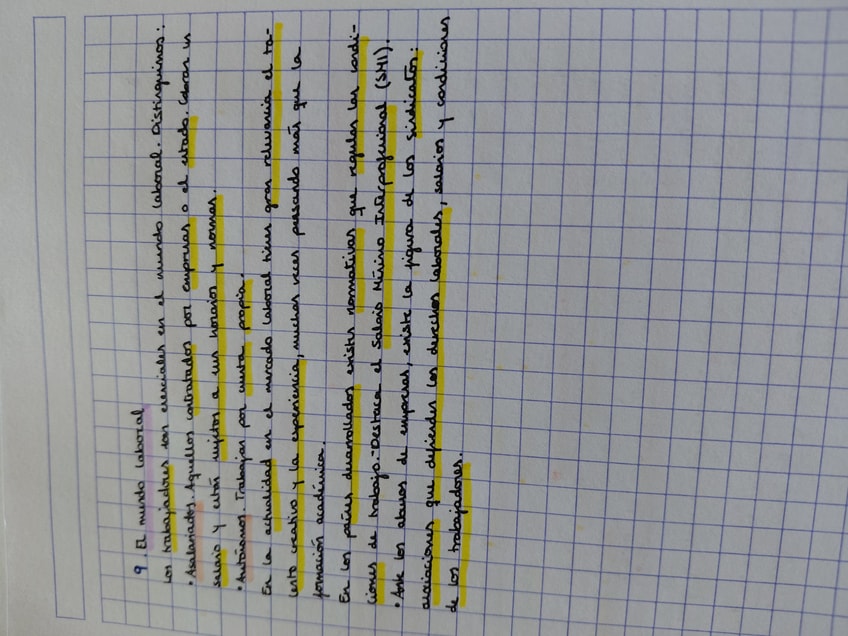 9 El mundo laboral
Los trabajadores son esenciales en el mundo laboral. Distinguimos:
• Asalariados. Aquellos contratados por empresas o el estado. Cobran un
salario y están sujetos a sus horarios y normas.
• Autónomos. Trabajan por cuenta propia.
En la actualidad en el mercado laboral tiene gran relevancia el ta-
lento creativo y la experiencia, muchas veces pesando más que la
formación académica.
En los países desarrollados existen normativas que regulan las condi-
ciones de trabajo. - Destaca el Salario Mínimo Interprofesional (SMI).
• Ante los abusos de empresas, existe la figura de los sindicatos:
asociaciones que defienden los derechos laborales, salarios y condiciones
de los trabajadores.